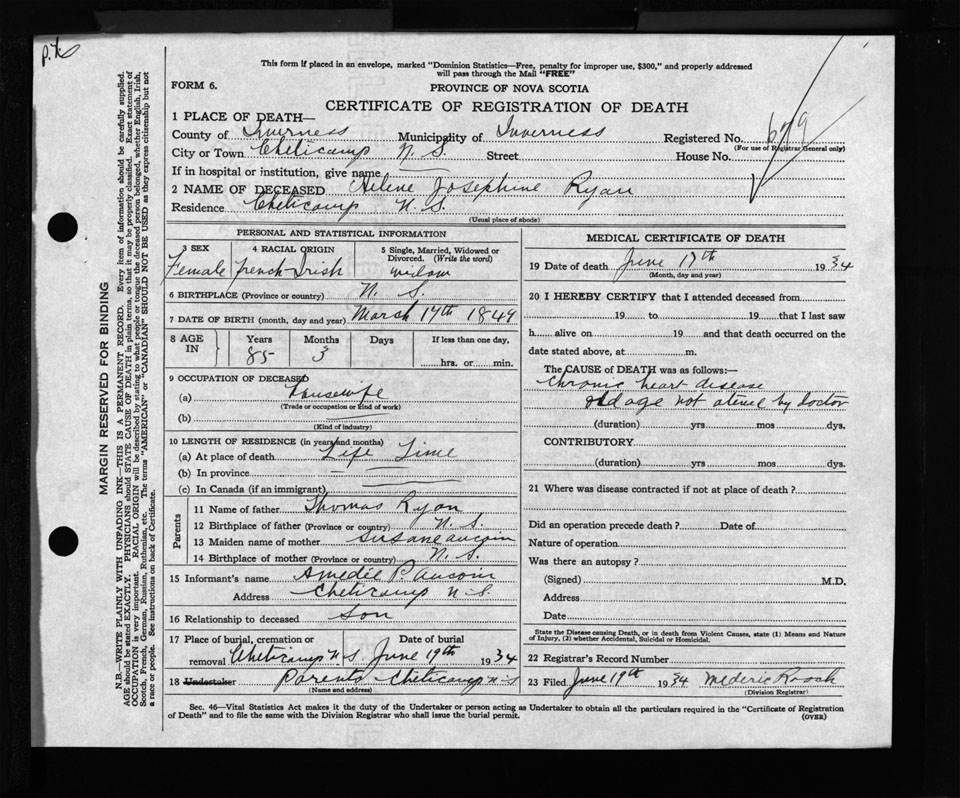 p.76
This form if placed in an envelope, marked "Dominion Statistics—Free, penalty for improper use, $300," and properly addressed
will pass through the Mail "FREE"
FORM 6.
PROVINCE OF NOVA SCOTIA
CERTIFICATE OF REGISTRATION OF DEATH
1 PLACE OF DEATH—
County of Inverness Municipality of Inverness Registered No. 679
(For use of Registrar General only)
City or Town Cheticamp N. S. Street House No.
If in hospital or institution, give name
2 NAME OF DECEASED Helene Josephine Ryan
Residence Cheticamp N. S.
(Usual place of abode)
PERSONAL AND STATISTICAL INFORMATION
3 SEX 4 RACIAL ORIGIN 5 Single, Married, Widowed or Divorced. (Write the word)
Female french-Irish widow
6 BIRTHPLACE (Province or country) N. S.
7 DATE OF BIRTH (month, day and year) March 17th 1849
8 AGE IN Years Months Days If less than one day,
85 3 hrs. or min.
9 OCCUPATION OF DECEASED
(a) Housewife
(Trade or occupation or kind of work)
(b)
(Kind of industry)
10 LENGTH OF RESIDENCE (in years and months)
(a) At place of death Life Time
(b) In province
(c) In Canada (if an immigrant)
Parents
11 Name of father Thomas Ryan
12 Birthplace of father (Province or country) N. S.
13 Maiden name of mother Susane aucoin
14 Birthplace of mother (Province or country) N. S.
15 Informant's name Amedie P. Aucoin
Address Cheticamp N. S.
16 Relationship to deceased Son
17 Place of burial, cremation or Date of burial
removal Cheticamp N S June 19th 1934
18 Undertaker Parents Cheticamp N. S
(Name and address)
MEDICAL CERTIFICATE OF DEATH
19 Date of death June 17th 1934
(Month, day and year)
20 I HEREBY CERTIFY that I attended deceased from
19 to 19 that I last saw
h alive on 19 and that death occurred on the
date stated above, at m.
The CAUSE of DEATH was as follows:—
Chronic heart disease
old age not by Doctor
(duration) yrs mos dys.
CONTRIBUTORY
(duration) yrs mos dys.
21 Where was disease contracted if not at place of death ?
Did an operation precede death ? Date of
Nature of operation
Was there an autopsy ?
(Signed) M.D.
Address
Date
State the Disease causing Death, or in death from Violent Causes, state (1) Means and Nature
of Injury, (2) whether Accidental, Suicidal or Homicidal.
22 Registrar's Record Number
23 Filed June 19th 1934 Mederic
(Division Registrar)
Sec. 46—Vital Statistics Act makes it the duty of the Undertaker or person acting as Undertaker to obtain all the particulars required in the "Certificate of Registration
of Death" and to file the same with the Division Registrar who shall issue the burial permit.
(OVER)
MARGIN RESERVED FOR BINDING
N.B.—WRITE PLAINLY WITH UNFADING INK—THIS IS A PERMANENT RECORD. Every item of information should be carefully supplied.
AGE should be stated EXACTLY. PHYSICIANS should STATE CAUSE OF DEATH in plain terms, so that it may be properly classified. Exact statement of
OCCUPATION is very important. RACIAL ORIGIN will be described by stating to what people or tongue the deceased person belonged, whether English, Irish,
Scotch, French, German, Russian, Ruthenian, etc. The terms "AMERICAN" or "CANADIAN" SHOULD NOT BE USED as they express citizenship but not
a race or people. See instructions on back of Certificate.